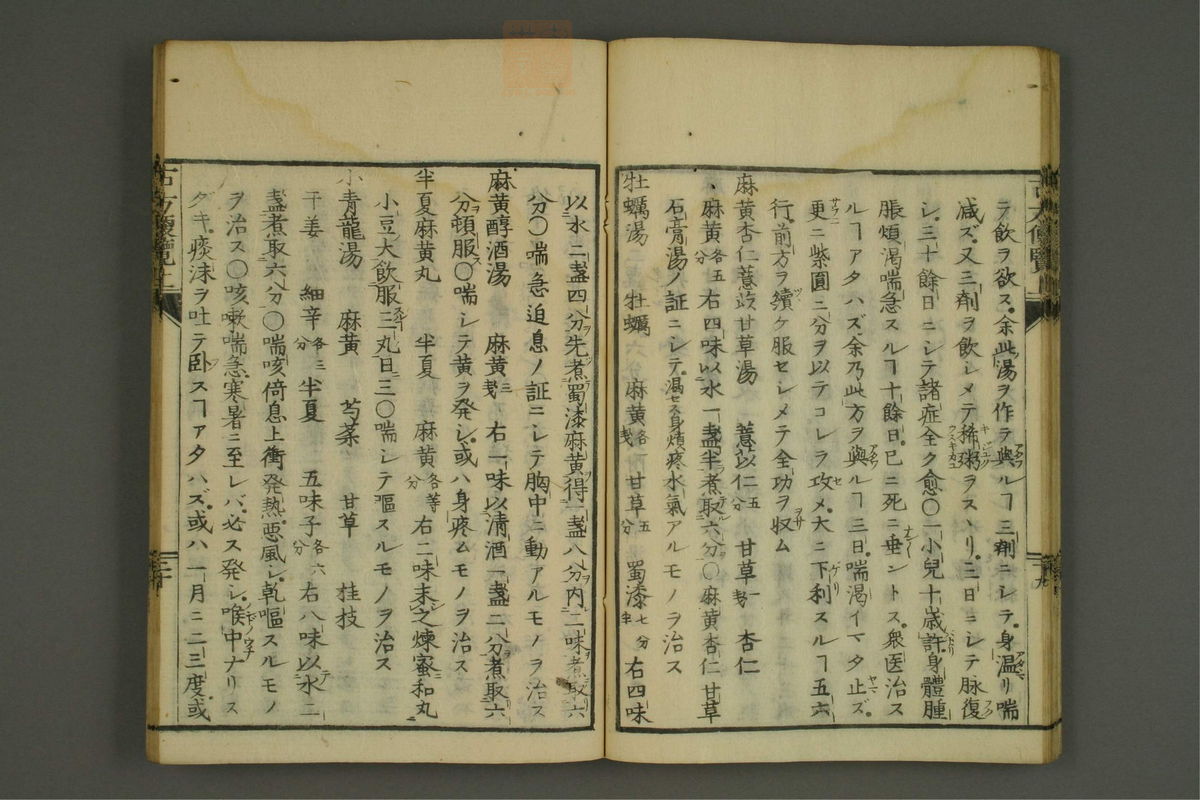 ラ飲ヲ欲ス。余此湯ヲ作テ與ルヿ三劑ニシテ。身温リ喘
減ズ。又三劑ヲ飲シメテ稀粥ヲスヽリ。三日ニシテ脉復
シ。三十餘日ニシテ諸症全ク愈〇一小兒十歳許。身體腫
脹煩渇喘急スルヿ十餘日。已ニ死ニ垂ントス。衆医治ス
ルヿアタハズ。余乃此方ヲ與ルヿ三日。喘渇イマタ止ズ。
更ニ紫圓二分ヲ以テコレヲ攻メ。大ニ下利スルヿ五六
行。前方ヲ續ケ服セシメテ全功ヲ収ム
麻黄杏仁薏苡甘草湯 薏苡仁五分 甘草一戔 杏仁
麻黄各五分 右四味以水一盞半煮取六分〇麻黄杏仁甘草
石膏湯ノ証ニシテ。渇セス身煩疼水氣アルモノヲ治ス
牡蠣湯 牡蠣 麻黄各一戔 甘草五分 蜀漆七分半 右四味
以水二盞四分先煮蜀漆麻黄得一盞八分内二味煮取六
分〇喘急迫息ノ証ニシテ胸中ニ動アルモノヲ治ス
麻黄醇酒湯 麻黄三戔 右一味以清酒一盞二分煮取六
分頓服〇喘シテ黄ヲ発シ。或ハ身疼ムモノヲ治ス
半夏麻黄丸 半夏 麻黄各等分 右二味末之煉蜜和丸
小豆大飲服三丸日三〇喘シテ嘔スルモノヲ治ス
小青龍湯 麻黄 芍薬 甘草 桂枝
干姜 細辛各三分 半夏 五味子各六分 右八味以水二
盞煮取六分〇喘咳倚息上衝発熱。悪風シ。乾嘔スルモノ
ヲ治ス〇咳嗽喘急寒暑ニ至レバ。必ス発シ。喉中ナリス
ダキ。痰沫ヲ吐テ卧スヿアタハズ。或ハ一月ニ二三度。或